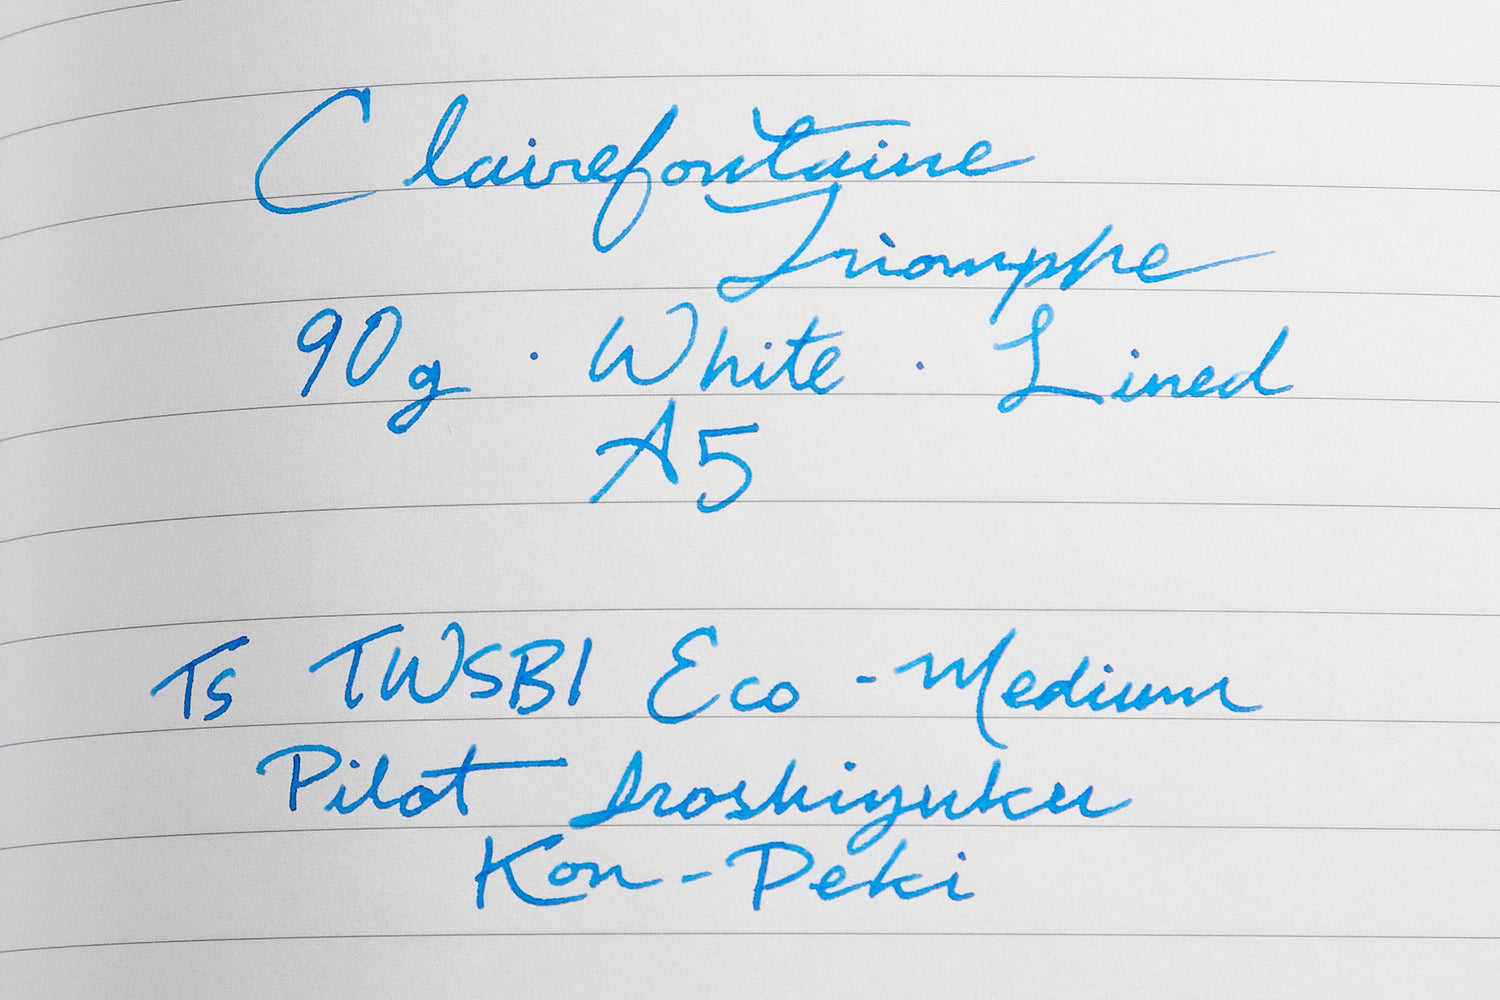 Clairefontaine
Triomphe
90g · White · Lined
A5
Ts TWSBI Eco - Medium
Pilot Iroshizuku
Kon-Peki